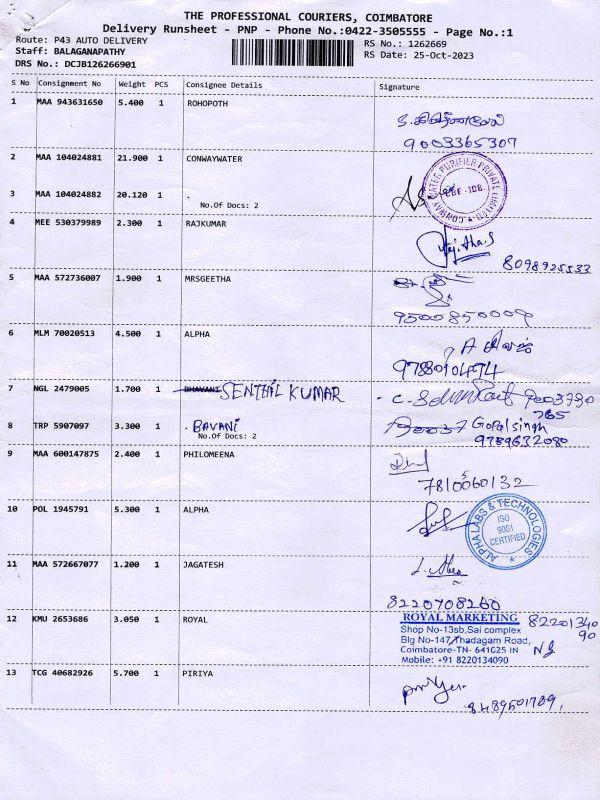 THE PROFESSIONAL COURIERS, COIMBATORE
Delivery Runsheet - PNP - Phone No.:0422-3505555 - Page No.:1
Route: P43 AUTO DELIVERY
RS No.: 1262669
Staff: BALAGANAPATHY
RS Date: 25-Oct-2023
DRS No.: DCJB126266901
S No Consignment No Weight PCS Consignee Details Signature
1 MAA 943631650 5.400 1 ROHOPOTH
9003365307
2 MAA 104024881 21.900 1 CONWAYWATER
3 MAA 104024882 20.120 1 .
No.Of Docs: 2
CONWAY WATER PURIFIER PRIVATE LIMITED
CBE-108.
4 MEE 530379989 2.300 1 RAJKUMAR
8098925533
5 MAA 572736007 1.900 1 MRSGEETHA
9500850009
6 MLM 70020513 4.500 1 ALPHA
97880104574
7 NGL 2479005 1.700 1 BHAVANI SENTHIL KUMAR
9003730
765
8 TRP 5907097 3.300 1 . BAVANI
No.Of Docs: 2
Gopalsingh
9789632080
9 MAA 600147875 2.400 1 PHILOMEENA
7810560132
10 POL 1945791 5.300 1 ALPHA
ALPHA LABS & TECHNOLOGIES
ISO
9001
CERTIFIED
11 MAA 572667077 1.200 1 JAGATESH
8220708260
12 KMU 2653686 3.050 1 ROYAL
ROYAL MARKETING
Shop No-13sb,Sai complex
Blg No-147,Thadagam Road,
Coimbatore-TN- 641025 IN
Mobile: +91 8220134090
82201340
90
13 TCG 40682926 5.700 1 PIRIYA
8489501789,